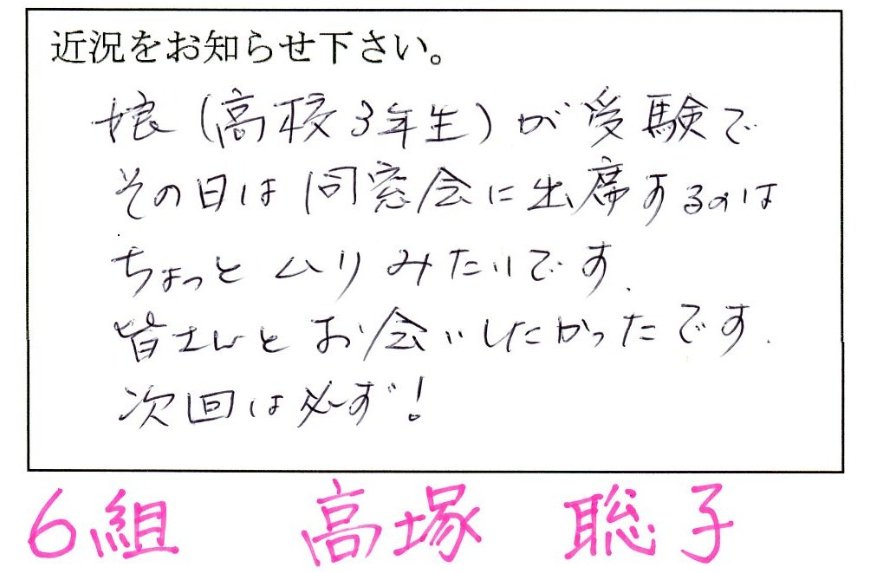 近況をお知らせ下さい。
娘(高校3年生)が受験で
その日は同窓会に出席するのは
ちょっとムリみたいです.
皆さんとお会いしたかったです.
次回は必ず!
6組 高塚 聡子